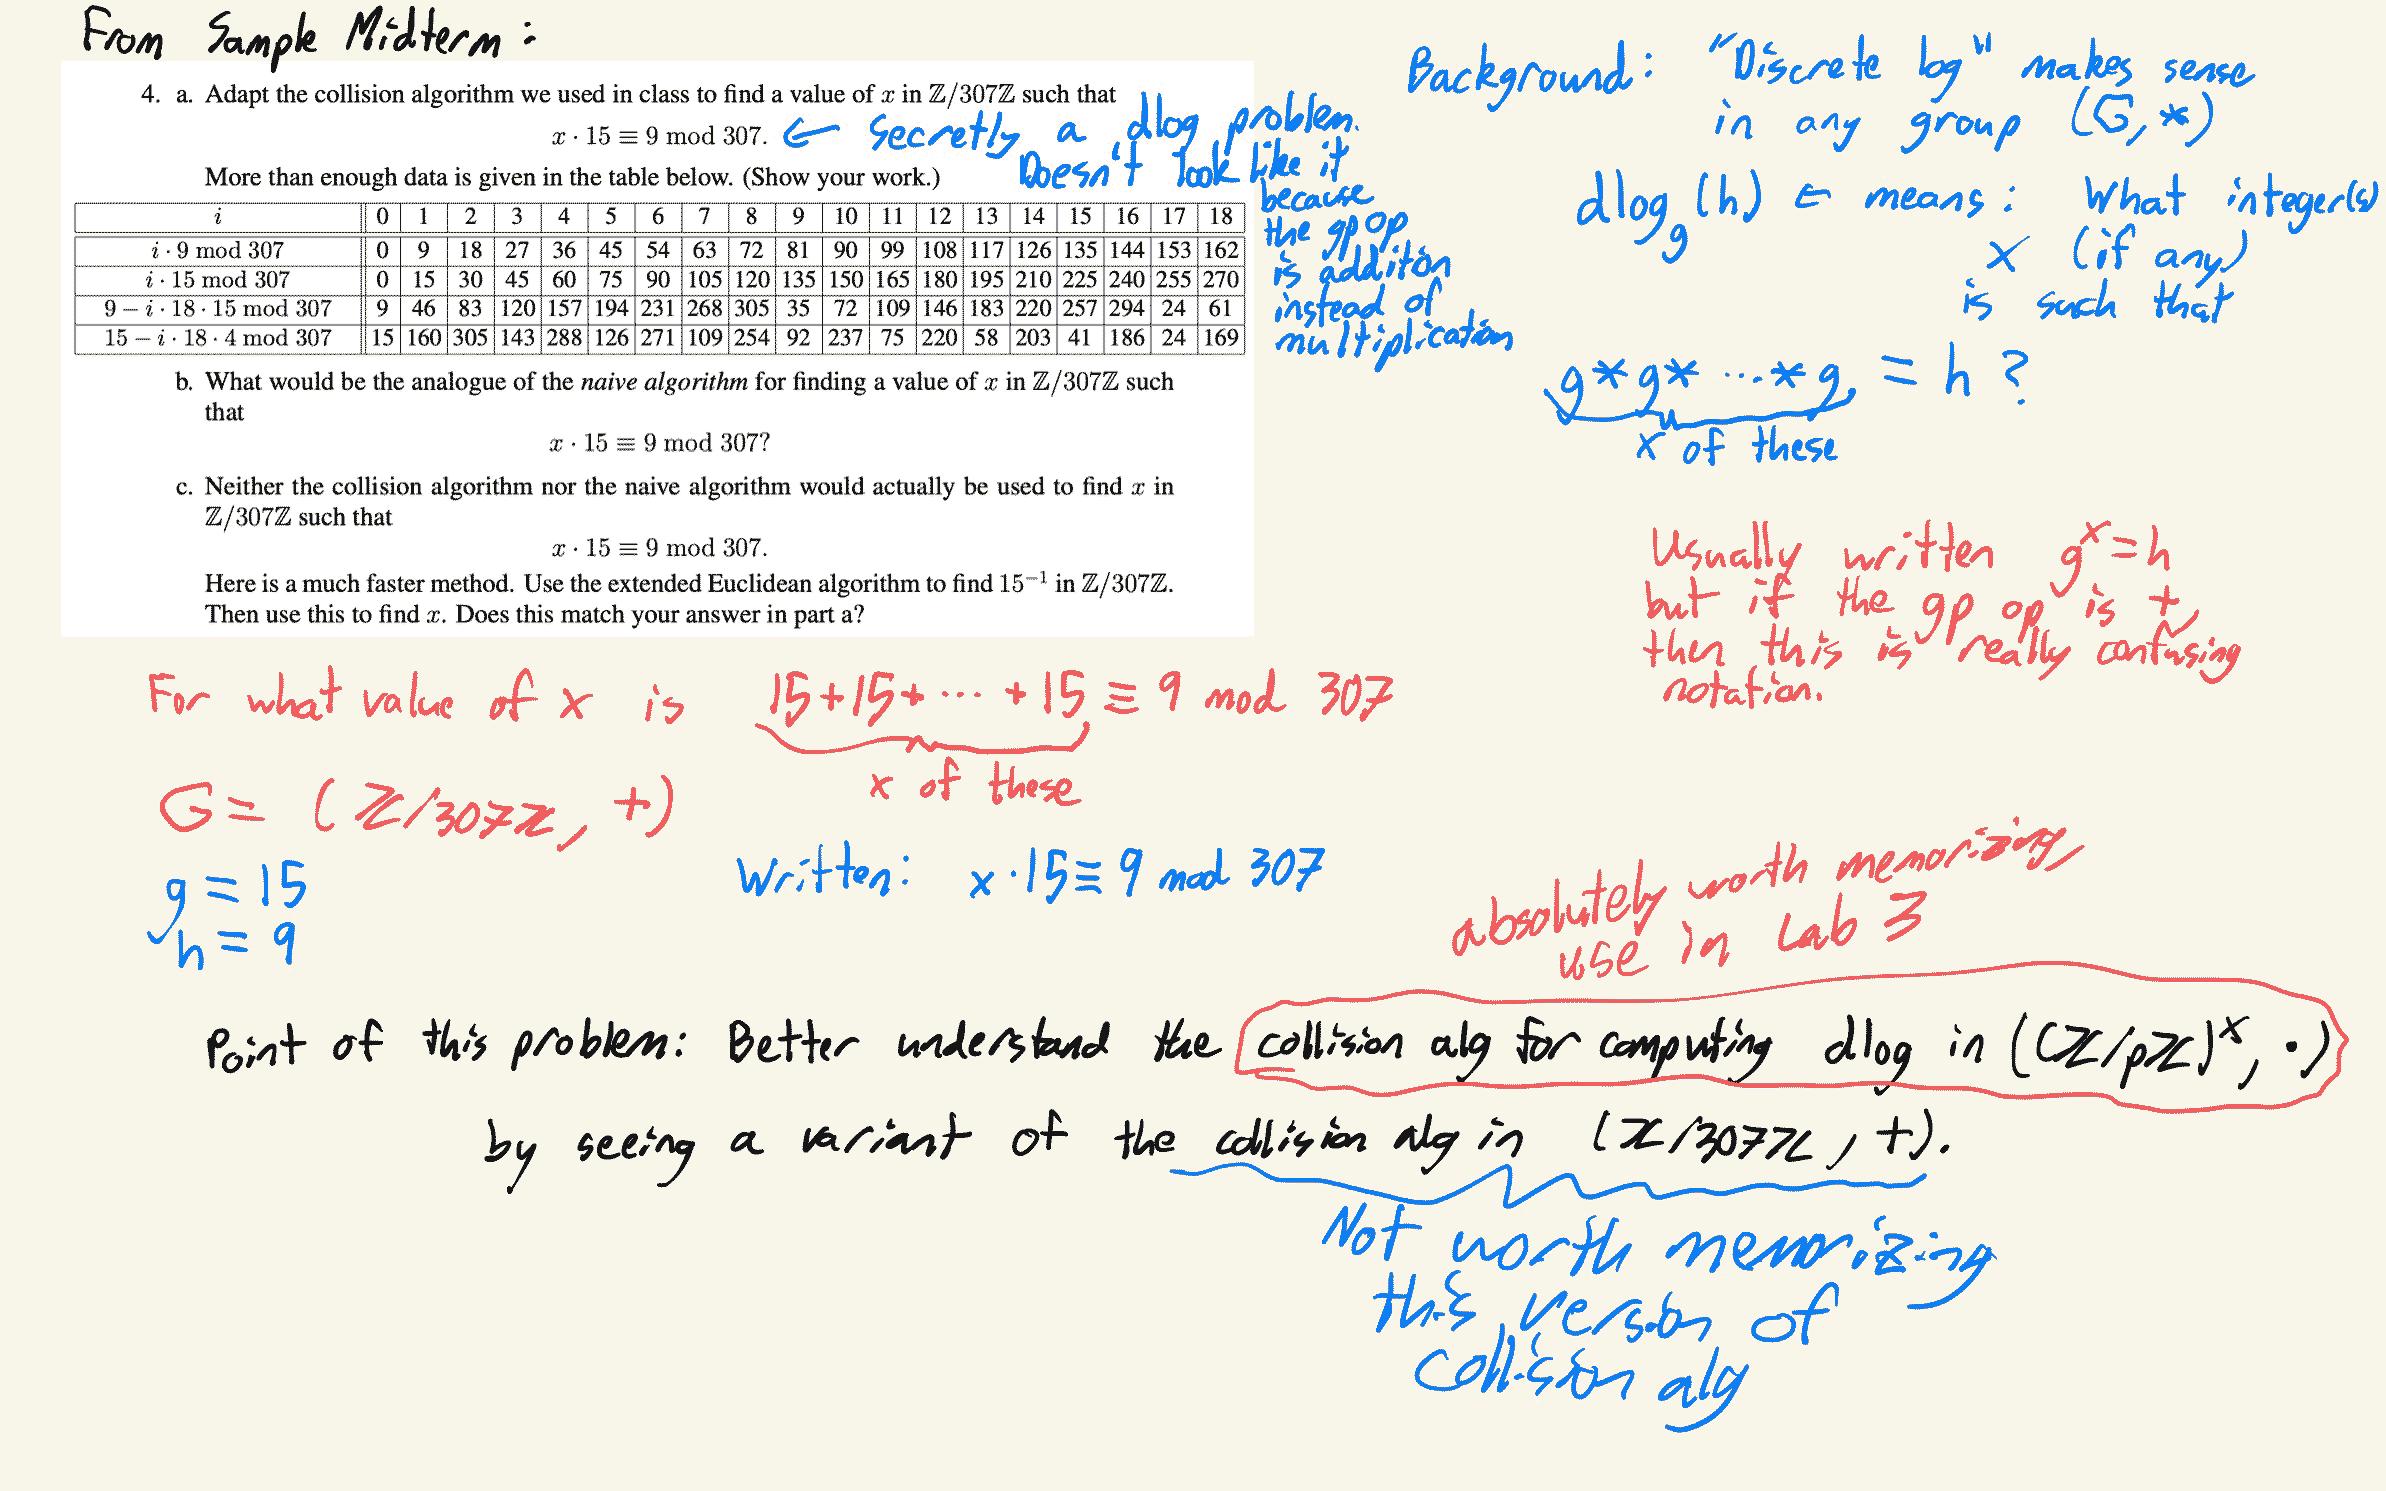 From Sample Midterm:
4. a. Adapt the collision algorithm we used in class to find a value of x in ℤ/307ℤ such that
x · 15 ≡ 9 mod 307.
← secretly a dlog problem.
Doesn't look like it
because
the gp op
is additon
instead of
multiplication
More than enough data is given in the table below. (Show your work.)
i 0 1 2 3 4 5 6 7 8 9 10 11 12 13 14 15 16 17 18
i · 9 mod 307 0 9 18 27 36 45 54 63 72 81 90 99 108 117 126 135 144 153 162
i · 15 mod 307 0 15 30 45 60 75 90 105 120 135 150 165 180 195 210 225 240 255 270
9 − i · 18 · 15 mod 307 9 46 83 120 157 194 231 268 305 35 72 109 146 183 220 257 294 24 61
15 − i · 18 · 4 mod 307 15 160 305 143 288 126 271 109 254 92 237 75 220 58 203 41 186 24 169
b. What would be the analogue of the naive algorithm for finding a value of x in ℤ/307ℤ such
that
x · 15 ≡ 9 mod 307?
c. Neither the collision algorithm nor the naive algorithm would actually be used to find x in
ℤ/307ℤ such that
x · 15 ≡ 9 mod 307.
Here is a much faster method. Use the extended Euclidean algorithm to find 15⁻¹ in ℤ/307ℤ.
Then use this to find x. Does this match your answer in part a?
Background: "Discrete log" makes sense
in any group (G, *)
dlog_g (h) ← means: What integer(s)
x (if any)
is such that
g * g * ... * g = h ?
x of these
Usually written gˣ = h
but if the gp op is +,
then this is really confusing
notation.
For what value of x is 15+15+ ... +15 ≡ 9 mod 307
x of these
G = (ℤ/307ℤ, +)
g = 15
h = 9
Written: x · 15 ≡ 9 mod 307
absolutely worth memorizing,
use in Lab 3
Point of this problem: Better understand the collision alg for computing dlog in ((ℤ/pℤ)ˣ, ·)
by seeing a variant of the collision alg in (ℤ/307ℤ, +).
Not worth memorizing
this version of
collision alg